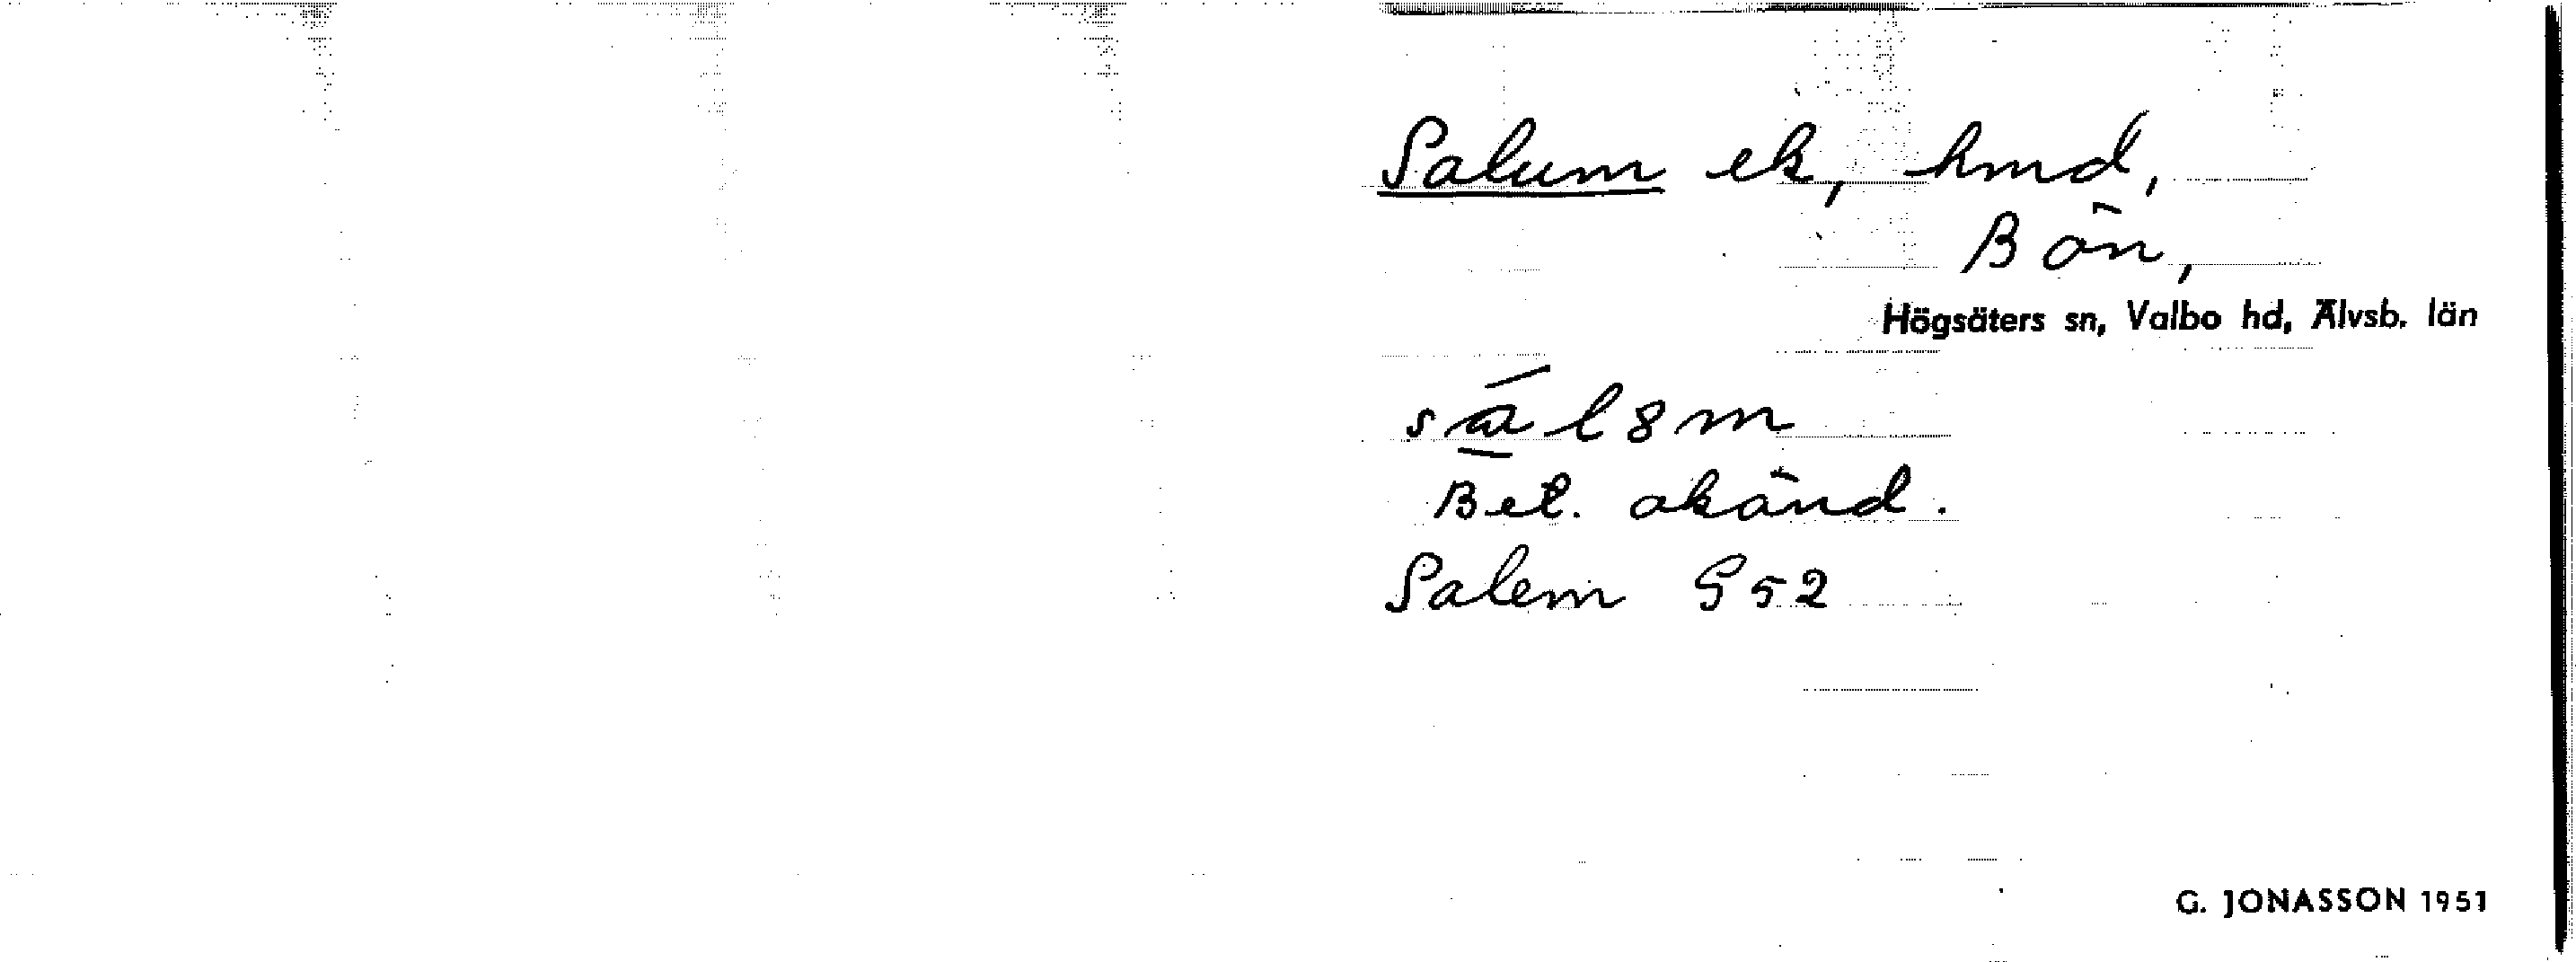 Salum ek, hmd,
Bön,
Högsäters sn, Valbo hd, Älvsb. län
Bet. okänd.
Salem G 52
G. JONASSON 1951